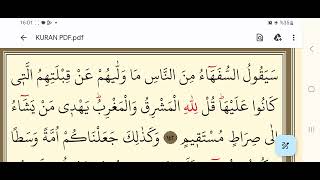 16:01
%35
KURAN PDF.pdf
سَيَقُولُ السُّفَهَٓاءُ مِنَ النَّاسِ مَا وَلّٰيهُمْ عَنْ قِبْلَتِهِمُ الَّتٖي
كَانُوا عَلَيْهَاۜ قُلْ لِلّٰهِ الْمَشْرِقُ وَالْمَغْرِبُۜ يَهْدٖي مَنْ يَشَٓاءُ
اِلٰى صِرَاطٍ مُسْتَقٖيمٍ ﴿١٤٢﴾ وَكَذٰلِكَ جَعَلْنَاكُمْ اُمَّةً وَسَطًا